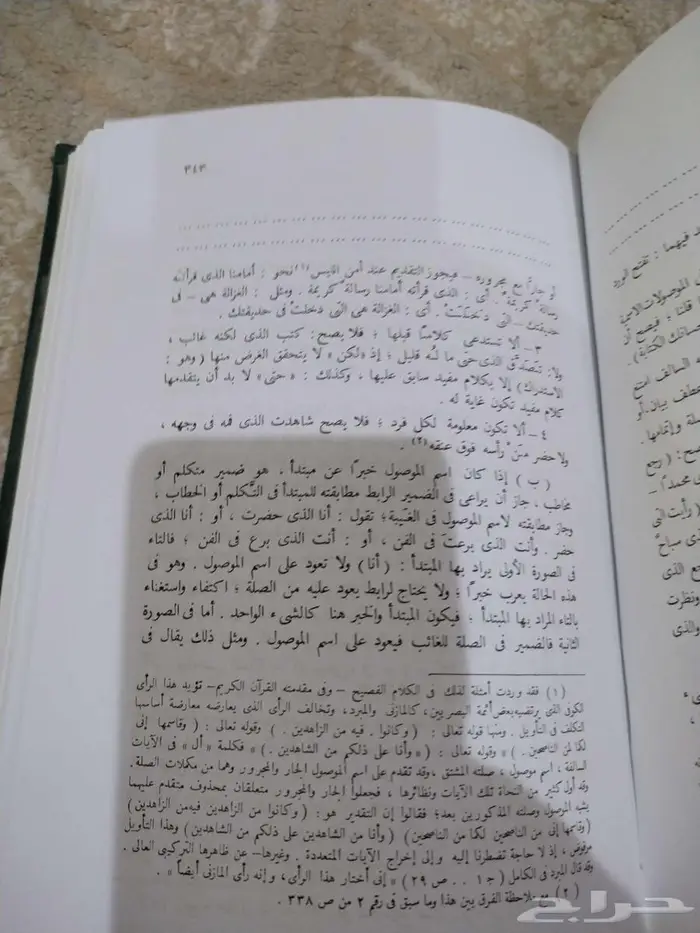 ٣٤٣
أو جارًّا مع مجروره — فيجوز التقديم عند أمن اللبس (١) نحو : أمامنا الذى قرأته
رسالةٌ كريمة . أى : الذى قرأته أمامنا رسالة كريمة . ومثل : الغزالة هى — فى
حديقتك — التى دخلَتْ . أى : الغزالة هى التى دخلت فى حديقتك .
٣ — ألا تستدعى كلامًا قبلها ؛ فلا يصح : كتب الذى لكنه غائب ،
ولا : تصَدَّق الذى حتى ما له قليل ؛ إذ «لكن» لا يتحقق الغرض منها ( وهو :
الاستدراك ) إلا بكلام مفيد سابق عليها ، وكذلك : «حتى» لا بد أن يتقدمها
كلام مفيد تكون غاية له .
٤ — ألا تكون معلومة لكل فرد ؛ فلا يصح شاهدت الذى فمه فى وجهه ،
ولا حضر مَنْ رأسه فوق عنقه (٢) .
( ب ) إذا كان اسم الموصول خبرًا عن مبتدأ ، هو ضمير متكلم أو
مخاطب ، جاز أن يراعى فى الضمير الرابط مطابقته للمبتدأ فى التَّكلم أو الخطاب ،
وجاز مطابقته لاسم الموصول فى الغَيبة ؛ تقول : أنا الذى حضرت ، أو : أنا الذى
حضر . وأنت الذى برعتَ فى الفن ، أو : أنت الذى برع فى الفن ؛ فالتاء
فى الصورة الأولى يراد بها المبتدأ : ( أنا ) ولا تعود على اسم الموصول . وهو فى
هذه الحالة يعرب خبرًا ؛ ولا يحتاج لرابط يعود عليه من الصلة ؛ اكتفاء واستغناء
بالتاء المراد بها المبتدأ ؛ فيكون المبتدأ والخبر هنا كالشىء الواحد . أما فى الصورة
الثانية فالضمير فى الصلة للغائب فيعود على اسم الموصول . ومثل ذلك يقال فى
(١) فقد وردت أمثلة لذلك فى الكلام الفصيح — وفى مقدمته القرآن الكريم — تؤيد هذا الرأى
الكوفى الذى يرتضيه بعض أئمة البصريين ، كالمازنى والمبرد ، وتخالف الرأى الذى يعارضه معارضة أساسها
التكلف فى التأويل . ومنها قوله تعالى : ( وكانوا . فيه من الزاهدين . ) وقوله تعالى : ( وقاسمها إنى
لكما لمن الناصحين . ) » وقوله تعالى : ( « وأنا على ذلكم من الشاهدين . ) » فكلمة « أل » فى الآيات
السالفة ، اسم موصول ، صلته المشتق ، وقد تقدم على اسم الموصول الجار والمجرور وهما من مكملات الصلة .
وقد أول كثير من النحاة تلك الآيات ونظائرها ، فجعلوا الجار والمجرور متعلقان بمحذوف متقدم عليهما
يشبه الموصول وصلته المذكورين بعد ؛ فقالوا إن التقدير هو : ( وكانوا من الزاهدين فيه من الزاهدين )
( وقاسمها إنى من الناصحين لكما من الناصحين ) ( وأنا من الشاهدين على ذلكم من الشاهدين ) وهذا التأويل
مرفوض ، إذ لا حاجة تضطرنا إليه وإلى إخراج الآيات المتعددة . وغيرها — عن ظاهرها التركيبى العالى .
وقد قال المبرد فى الكامل ( ج ١ . . ص ٢٩ ) » إنى أختار هذا الرأى ، وإنه رأى المازنى أيضًا » .
( ٢ ) مع ملاحظة الفرق بين هذا وما سبق فى رقم ٢ من ص ٣٣٨ .
حراج